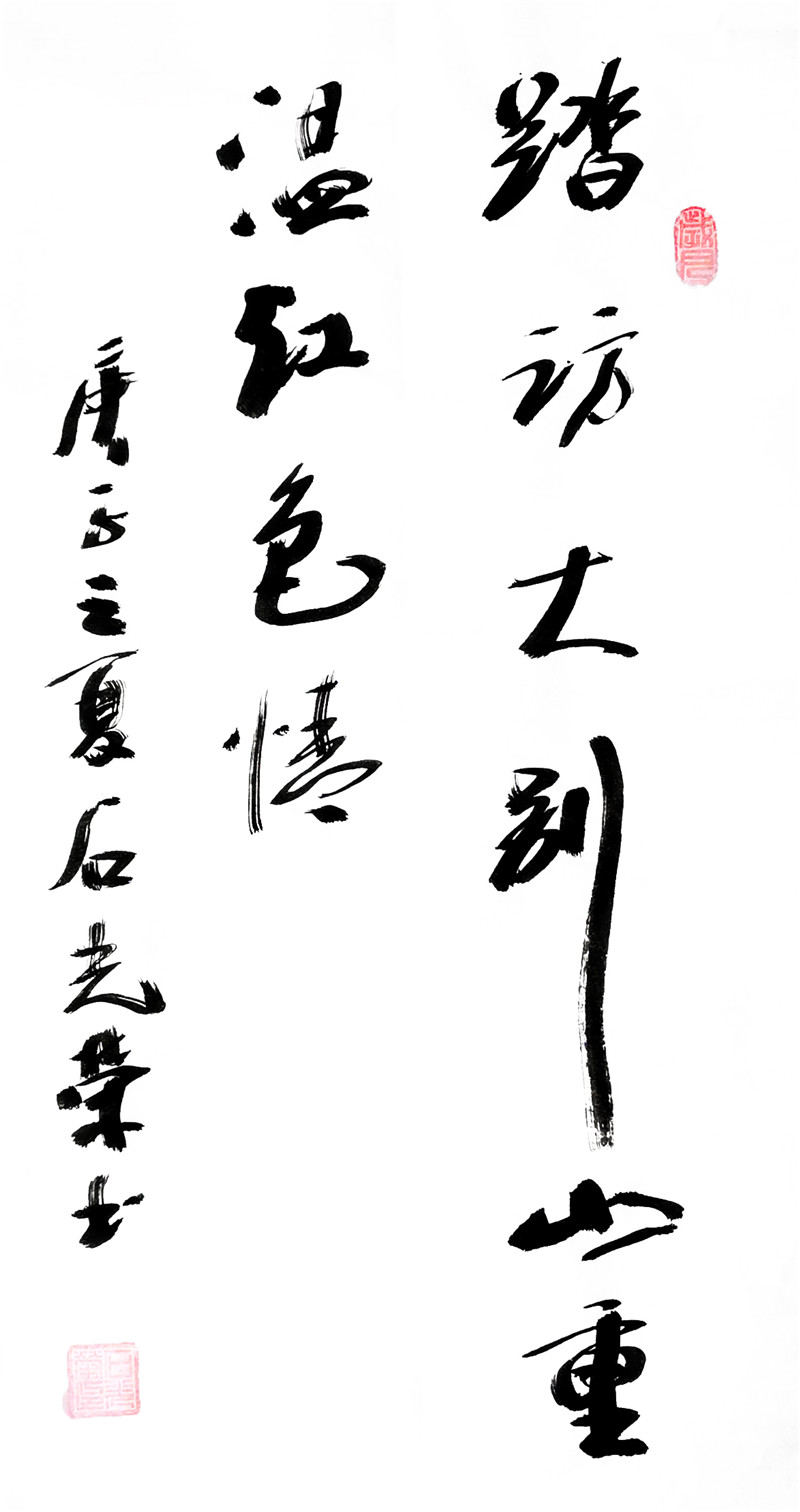 踏访大别山重
温红色情
庚子之夏石光荣书